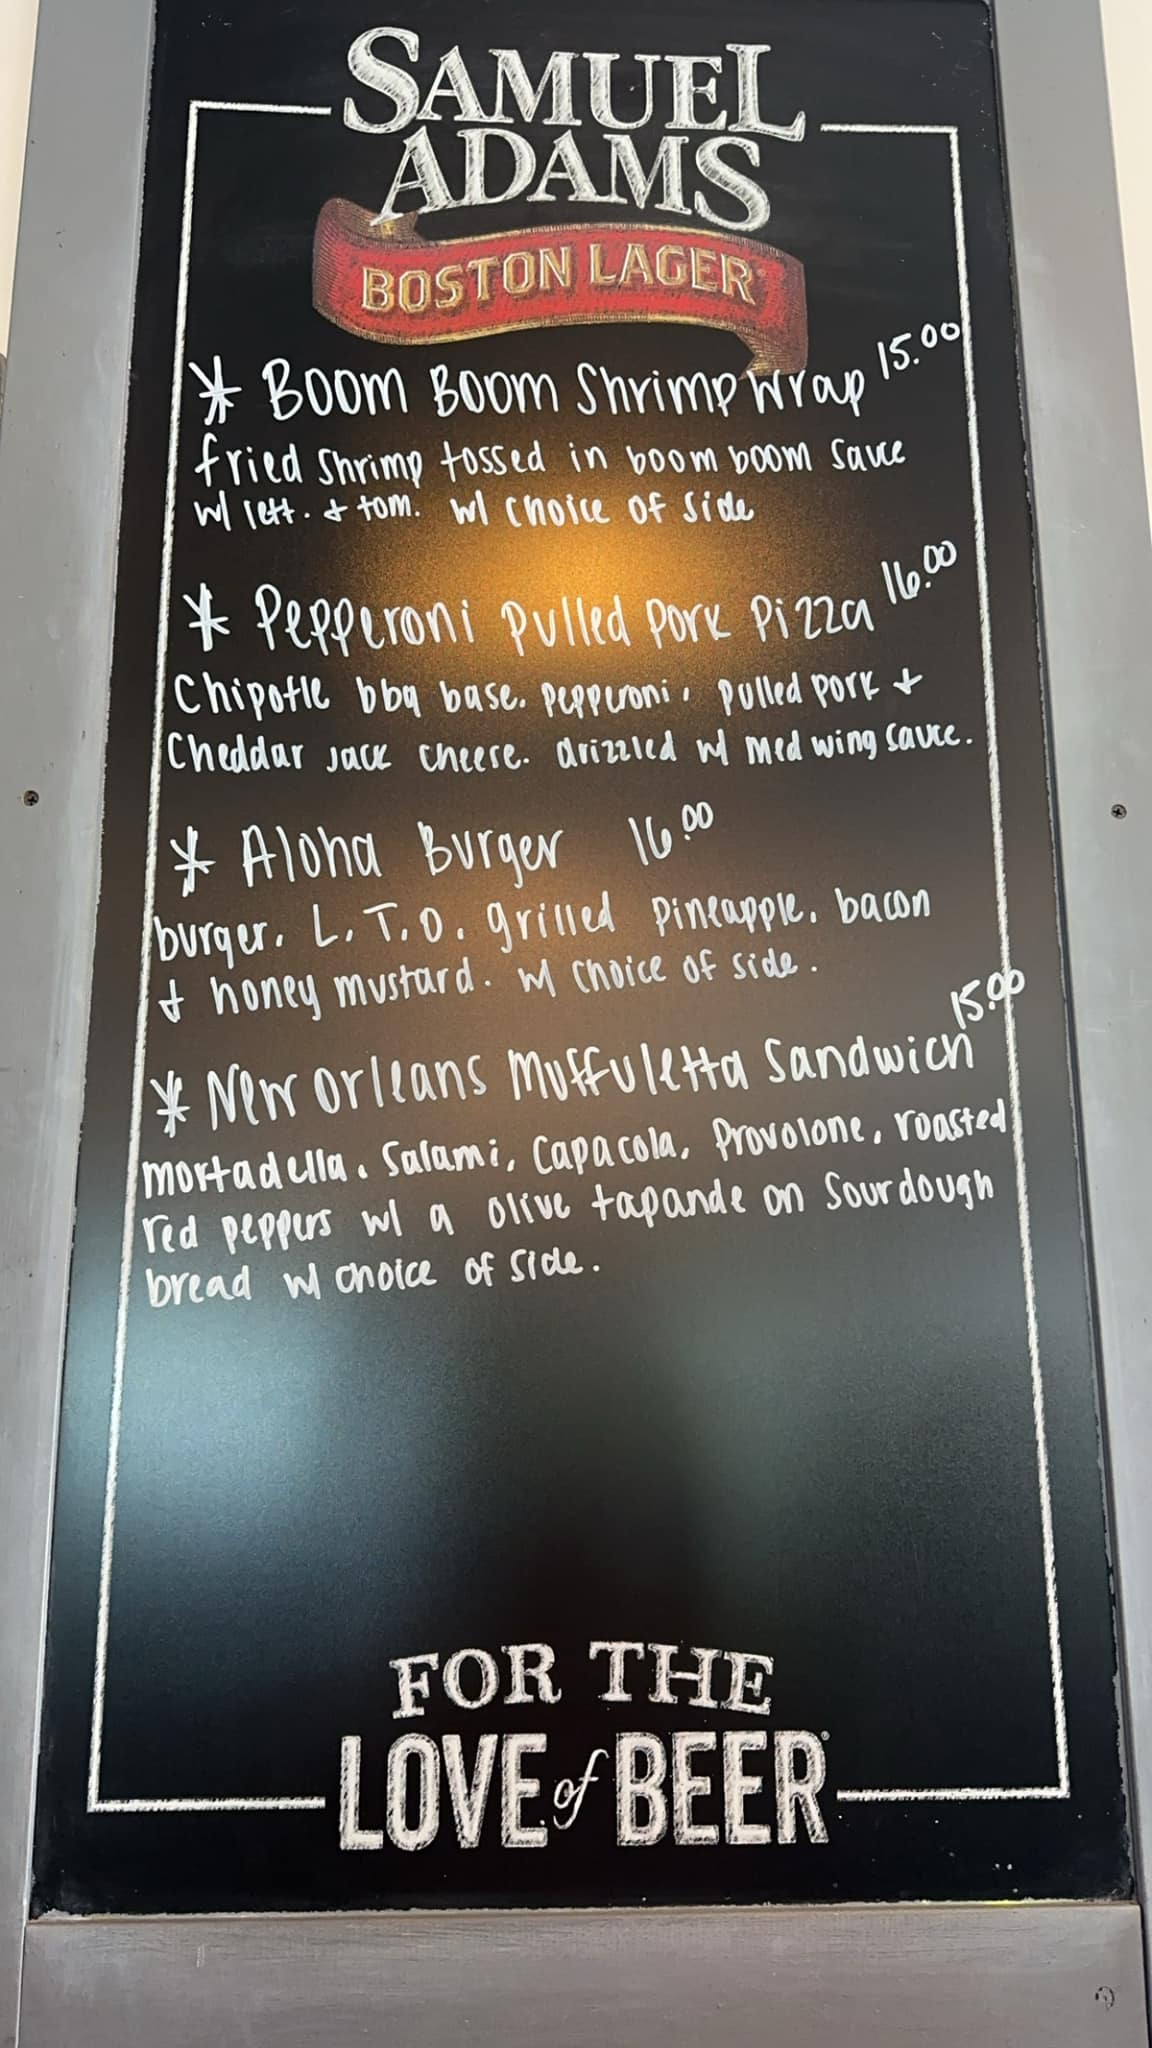 SAMUEL
ADAMS
BOSTON LAGER
* Boom Boom Shrimp Wrap 15.00
fried shrimp tossed in boom boom sauce
w/ lett. & tom. w/ choice of side
* Pepperoni Pulled Pork Pizza 16.00
Chipotle bbq base, pepperoni, pulled pork &
Cheddar Jack cheese. drizzled w/ med wing sauce.
* Aloha Burger 16.00
burger, L, T, O, grilled pineapple, bacon
& honey mustard. w/ choice of side.
15.00
* New Orleans Muffuletta Sandwich
mortadella, salami, capacola, provolone, roasted
red peppers w/ a olive tapande on sourdough
bread w/ choice of side.
FOR THE
LOVE of BEER®